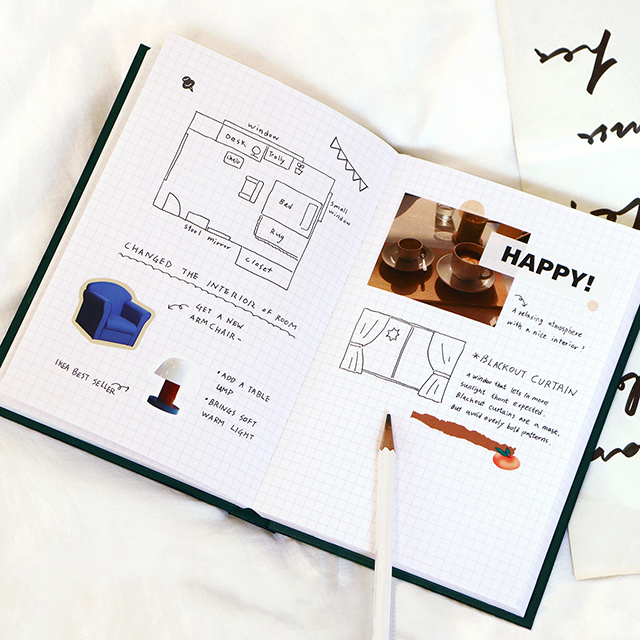 window
Desk
Trolly
Chair
Bed
Small
window
Rug
stool mirror
closet
CHANGED THE INTERIOR OF ROOM
GET A NEW
ARMCHAIR~
IKEA BEST SELLER
• ADD A TABLE
LAMP
• BRINGS SOFT
WARM LIGHT
HAPPY!
A relaxing atmosphere
with a nice interior!
*BLACKOUT CURTAIN
A window that lets in more
sunlight than I expected.
Blackout curtains are a must,
But avoid overly bold patterns.